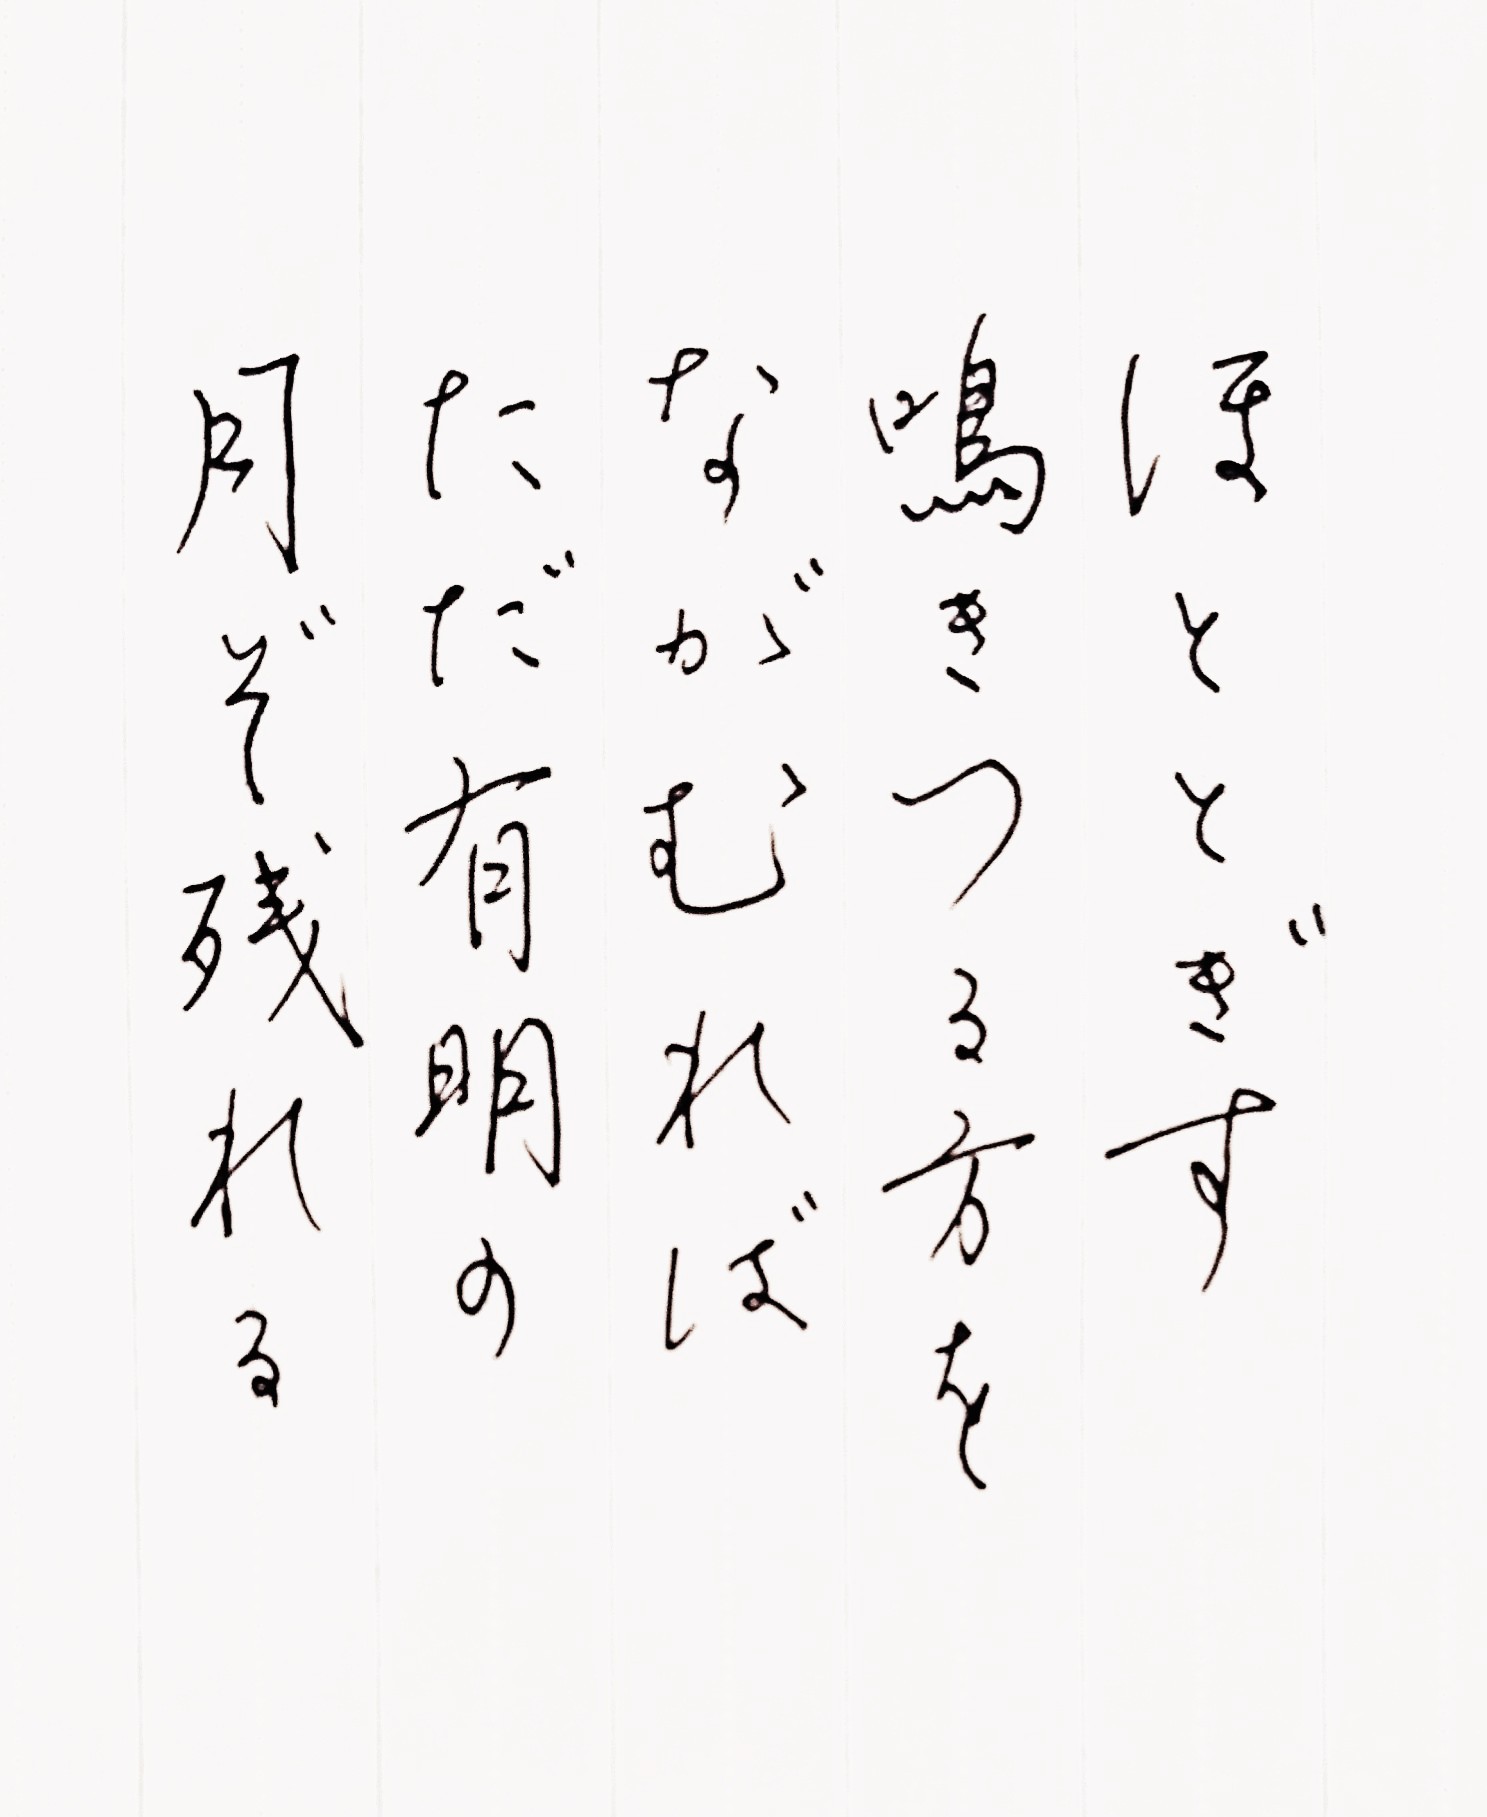 ほととぎす
鳴きつる方を
ながむれば
ただ有明の
月ぞ残れる